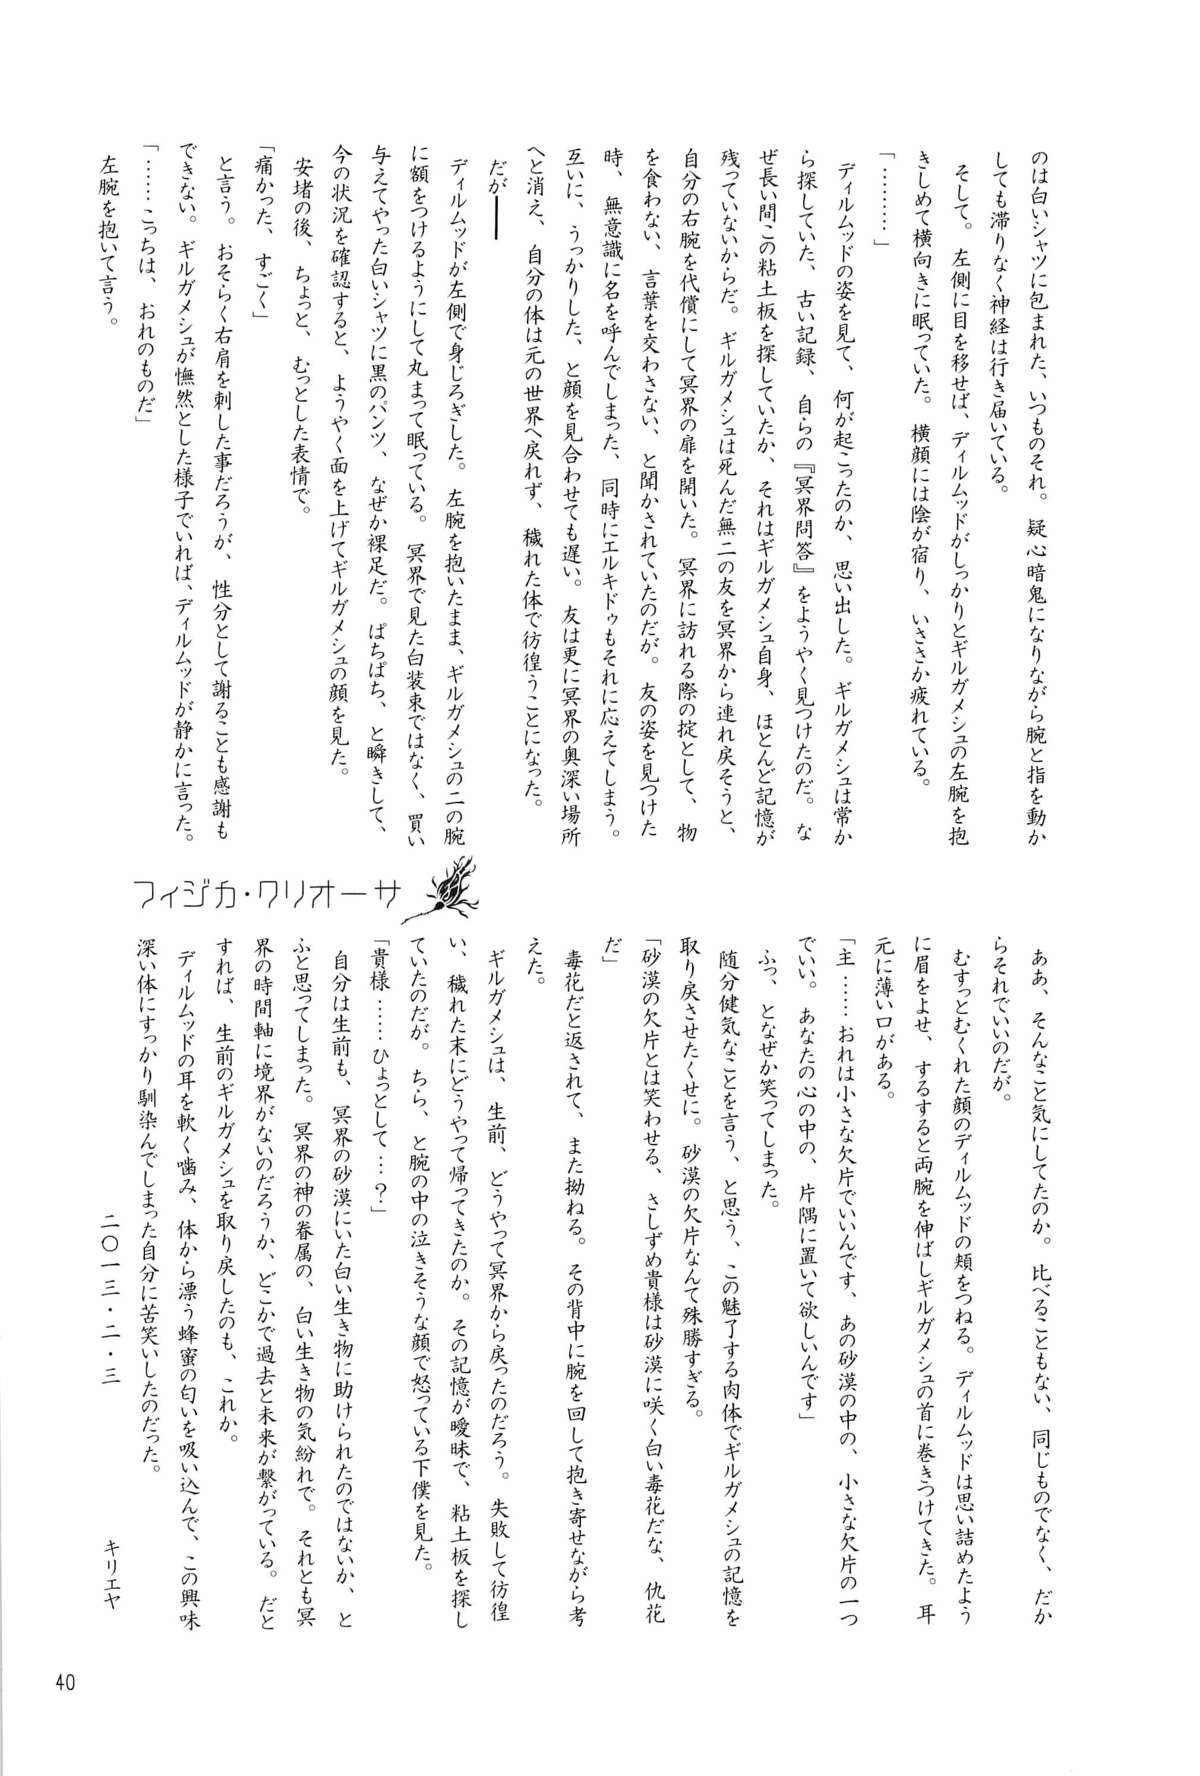 のは白いシャツに包まれた、いつものそれ。疑心暗鬼になりながら腕と指を動か
しても滞りなく神経は行き届いている。
そして。左側に目を移せば、ディルムッドがしっかりとギルガメシュの左腕を抱
きしめて横向きに眠っていた。横顔には陰が宿り、いささか疲れている。
「………」
ディルムッドの姿を見て、何が起こったのか、思い出した。ギルガメシュは常か
ら探していた、古い記録、自らの『冥界問答』をようやく見つけたのだ。な
ぜ長い間この粘土板を探していたか、それはギルガメシュ自身、ほとんど記憶が
残っていないからだ。ギルガメシュは死んだ無二の友を冥界から連れ戻そうと、
自分の右腕を代償にして冥界の扉を開いた。冥界に訪れる際の掟として、物
を食わない、言葉を交わさない、と聞かされていたのだが。友の姿を見つけた
時、無意識に名を呼んでしまった、同時にエルキドゥもそれに応えてしまう。
互いに、うっかりした、と顔を見合わせても遅い。友は更に冥界の奥深い場所
へと消え、自分の体は元の世界へ戻れず、穢れた体で彷徨うことになった。
だが――
ディルムッドが左側で身じろぎした。左腕を抱いたまま、ギルガメシュの二の腕
に額をつけるようにして丸まって眠っている。冥界で見た白装束ではなく、買い
与えてやった白いシャツに黒のパンツ、なぜか裸足だ。ぱちぱち、と瞬きして、
今の状況を確認すると、ようやく面を上げてギルガメシュの顔を見た。
安堵の後、ちょっと、むっとした表情で。
「痛かった、すごく」
と言う。おそらく右肩を刺した事だろうが、性分として謝ることも感謝も
できない。ギルガメシュが憮然とした様子でいれば、ディルムッドが静かに言った。
「……こっちは、おれのものだ」
左腕を抱いて言う。
フィジカ・クリオーサ
ああ、そんなこと気にしてたのか。比べることもない、同じものでなく、だか
らそれでいいのだが。
むすっとむくれた顔のディルムッドの頬をつねる。ディルムッドは思い詰めたよう
に眉をよせ、するすると両腕を伸ばしギルガメシュの首に巻きつけてきた。耳
元に薄い口がある。
「主……おれは小さな欠片でいいんです、あの砂漠の中の、小さな欠片の一つ
でいい。あなたの心の中の、片隅に置いて欲しいんです」
ふっ、となぜか笑ってしまった。
随分健気なことを言う、と思う、この魅了する肉体でギルガメシュの記憶を
取り戻させたくせに。砂漠の欠片なんて殊勝すぎる。
「砂漠の欠片とは笑わせる、さしずめ貴様は砂漠に咲く白い毒花だな、仇花
だ」
毒花だと返されて、また拗ねる。その背中に腕を回して抱き寄せながら考
えた。
ギルガメシュは、生前、どうやって冥界から戻ったのだろう。失敗して彷徨
い、穢れた末にどうやって帰ってきたのか。その記憶が曖昧で、粘土板を探し
ていたのだが。ちら、と腕の中の泣きそうな顔で怒っている下僕を見た。
「貴様……ひょっとして…？」
自分は生前も、冥界の砂漠にいた白い生き物に助けられたのではないか、と
ふと思ってしまった。冥界の神の眷属の、白い生き物の気紛れで。それとも冥
界の時間軸に境界がないのだろうか、どこかで過去と未来が繋がっている。だと
すれば、生前のギルガメシュを取り戻したのも、これか。
ディルムッドの耳を軟く噛み、体から漂う蜂蜜の匂いを吸い込んで、この興味
深い体にすっかり馴染んでしまった自分に苦笑いしたのだった。
二〇一三・二・三　キリエヤ
40